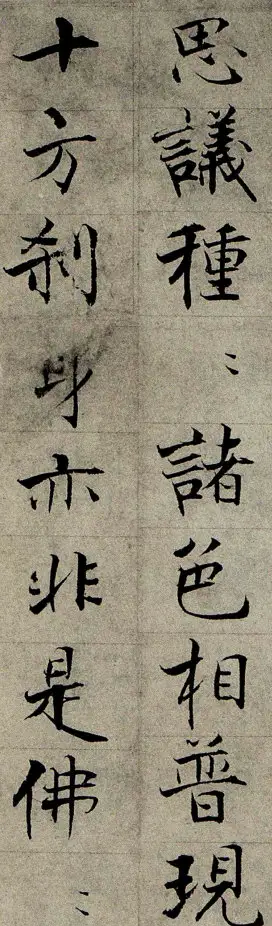 思議種〻諸色相普現
十方剎身亦非是佛〻